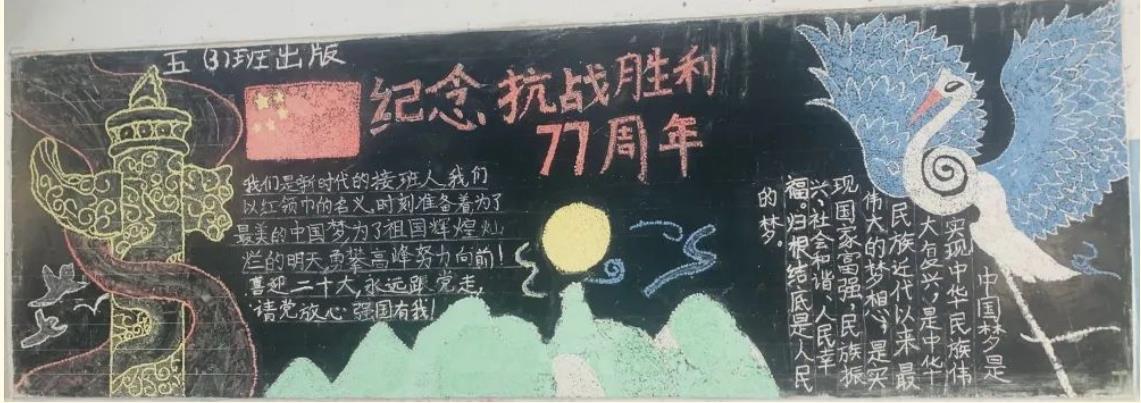 五(3)班出版
纪念抗战胜利
77周年
我们是新时代的接班人,我们
以红领巾的名义,时刻准备着为了
最美的中国梦为了祖国辉煌灿
烂的明天勇攀高峰努力向前!
喜迎二十大,永远跟党走,
请党放心 强国有我!
中国梦是
实现中华民族伟
大复兴,是中华
民族近代以来最
伟大的梦想,是实
现国家富强、民族振
兴、社会和谐、人民幸
福。归根结底是人民
的梦。